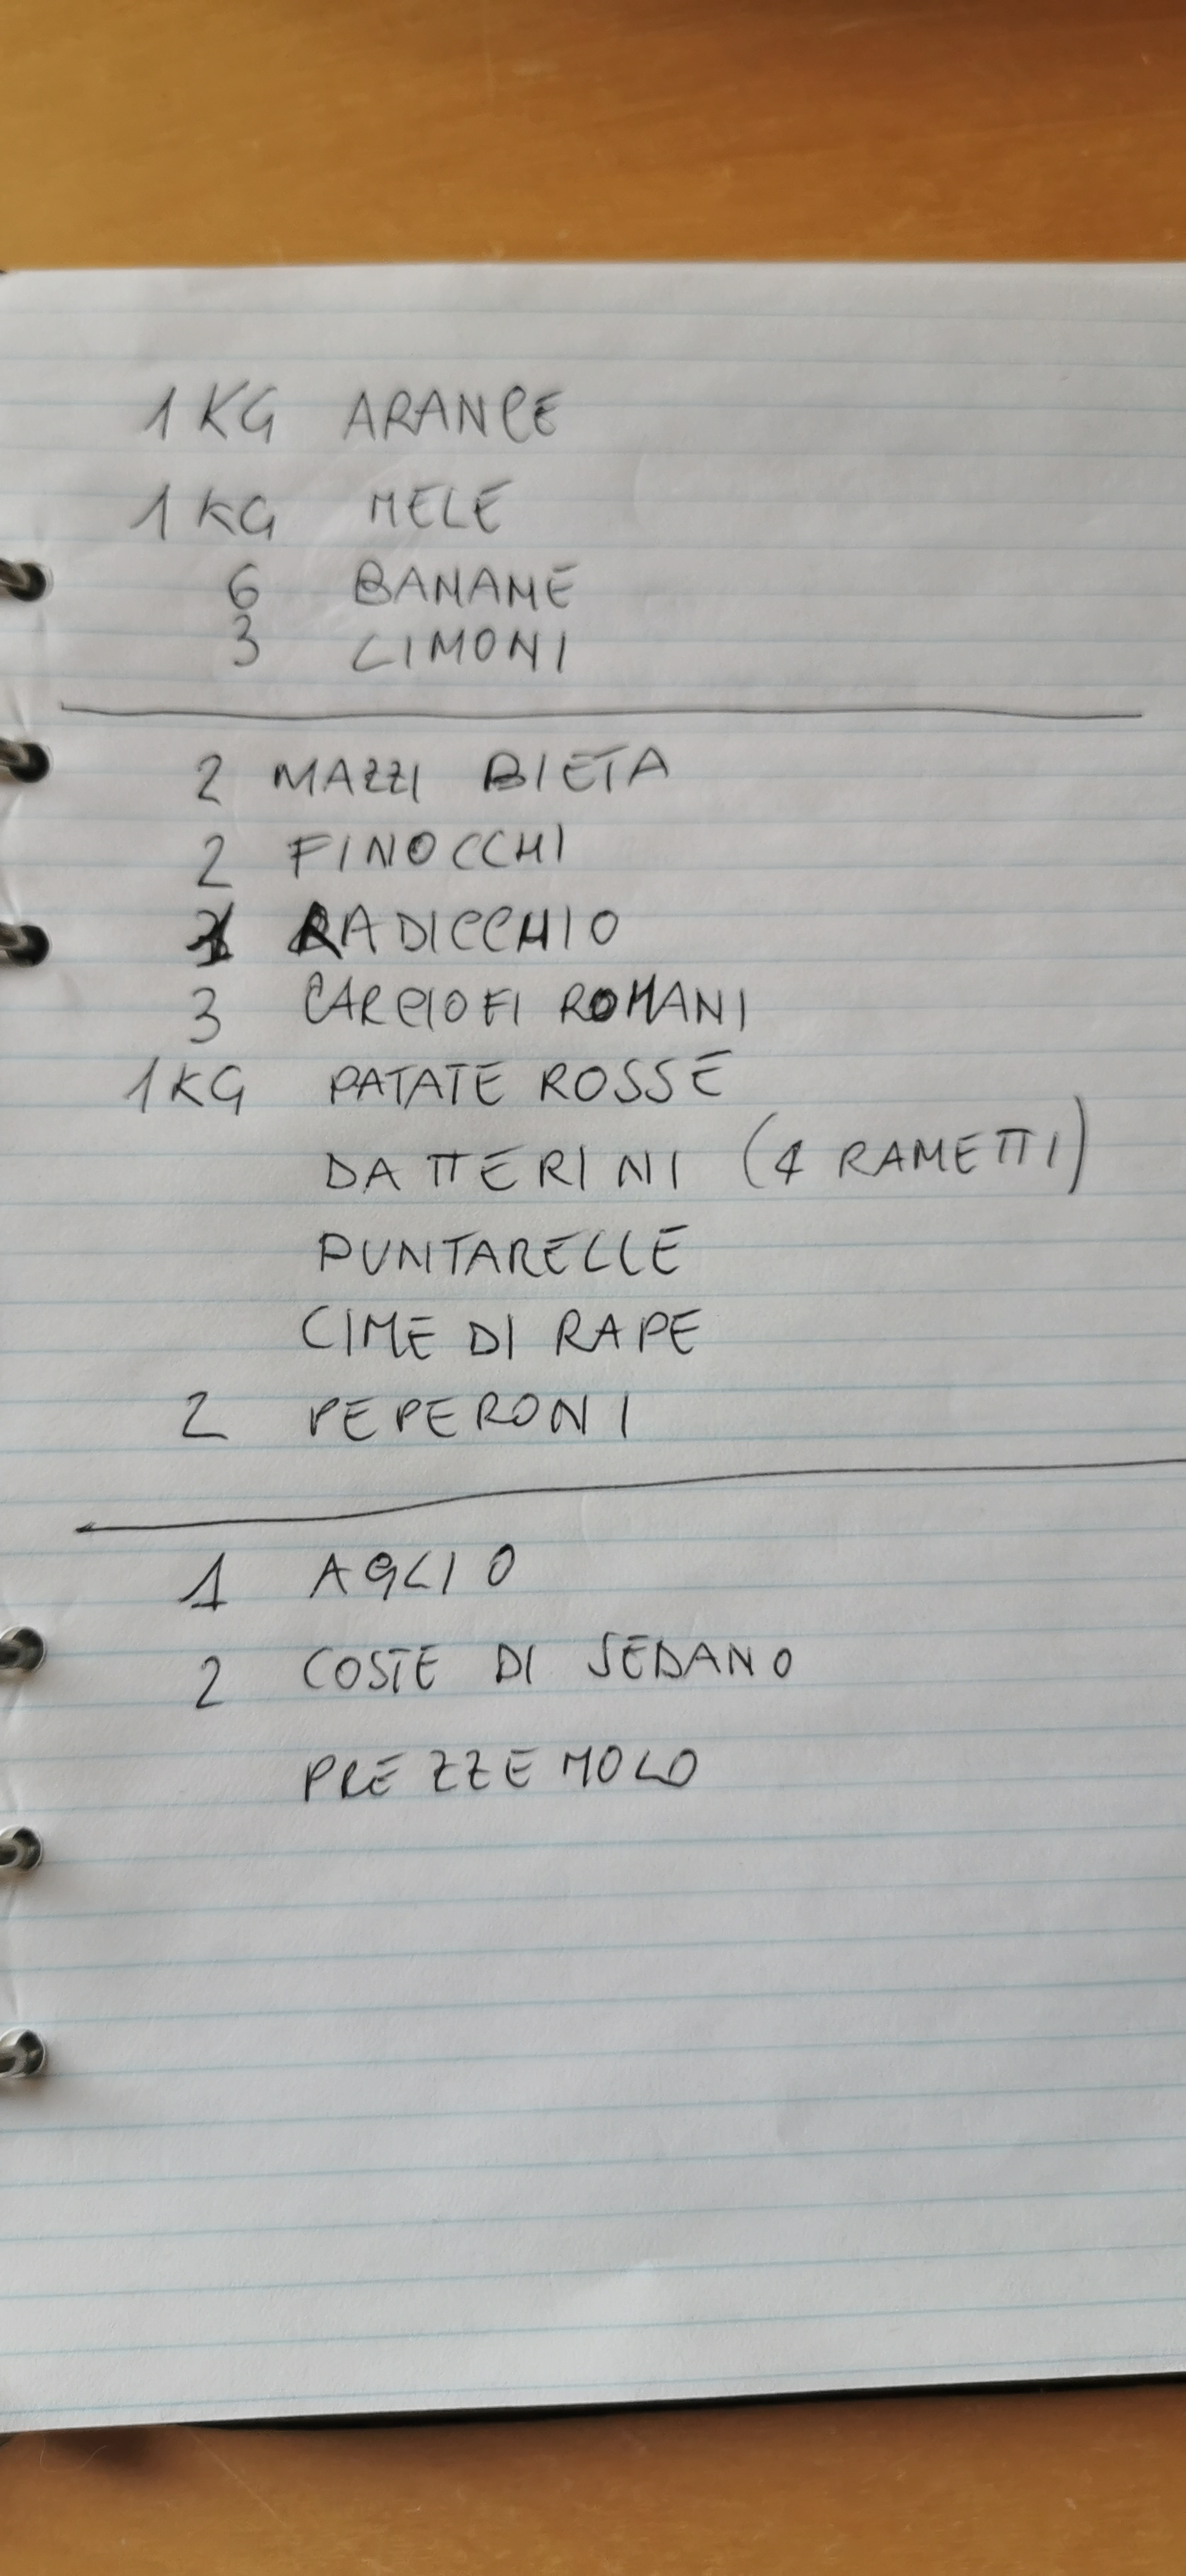 1 KG ARANCE
1 KG MELE
6 BANANE
3 LIMONI
2 MAZZI BIETA
2 FINOCCHI
RADICCHIO
3 CARCIOFI ROMANI
1 KG PATATE ROSSE
DATTERINI (4 RAMETTI)
PUNTARELLE
CIME DI RAPE
2 PEPERONI
1 AGLIO
2 COSTE DI SEDANO
PREZZEMOLO